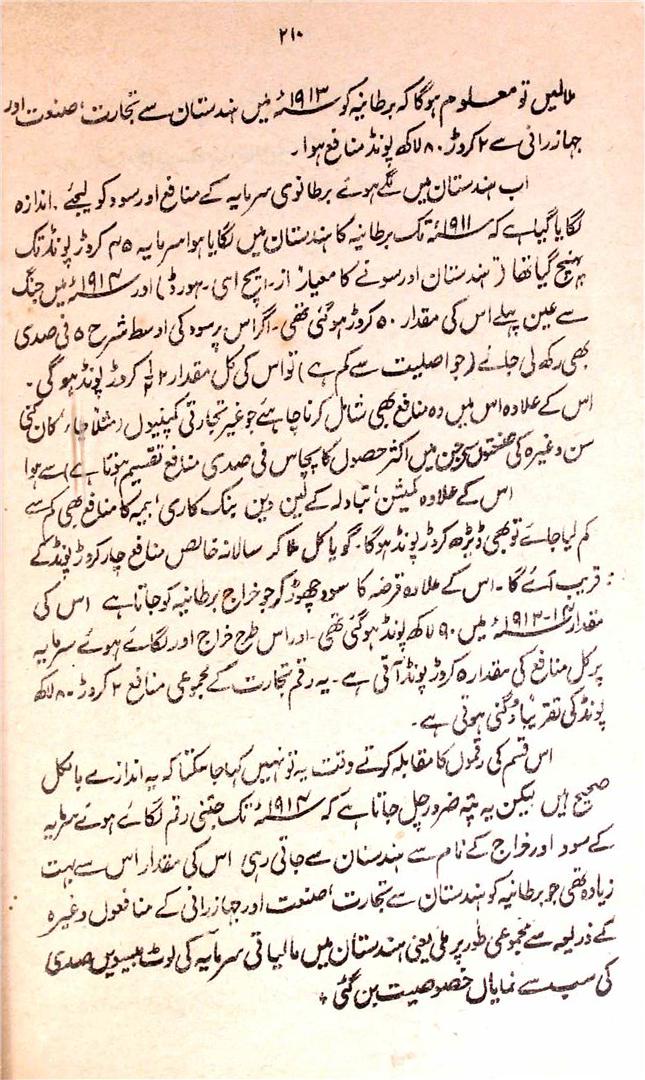 ۲۱۰
ملالیں تو معلوم ہوگا کہ برطانیہ کو ۱۹۱۳ء میں ہندستان سے تجارت، صنعت اور
جہازرانی سے ۲ کروڑ ۸۰ لاکھ پونڈ منافع ہوا۔
اب ہندستان میں لگے ہوئے برطانوی سرمایہ کے منافع اور سود کو لیجئے۔ اندازہ
لگایا گیا ہے کہ ۱۹۱۱ء تک برطانیہ کا ہندستان میں لگایا ہوا سرمایہ ۴۵ کروڑ پونڈ تک
پہنچ گیا تھا (ہندستان اور سونے کا معیار از۔ ایچ۔ ای۔ ہورڈ) اور ۱۹۱۴ء میں جنگ
سے عین پہلے اس کی مقدار ۵۰ کروڑ ہوگئی تھی۔ اگر اس پر سود کی اوسط شرح ۵ فی صدی
بھی رکھ لی جائے (جو اصلیت سے کم ہے) تو اس کی کل مقدار ۲½ کروڑ پونڈ ہوگی۔
اس کے علاوہ اس میں وہ منافع بھی شامل کرنا چاہئے جو غیر تجارتی کمپنیوں (مثلاً چاء، کان کنی
سن وغیرہ کی صنعتوں سے جن میں اکثر حصوں کا پچاس فی صدی منافع تقسیم ہوتا ہے) سے ہوا
اس کے علاوہ کمیشن، تبادلہ کے لین دین، بنک کاری، بیمہ کا منافع بھی کم سے
کم لیا جائے تو بھی ڈیڑھ کروڑ پونڈ ہوگا۔ گویا کل ملا کر سالانہ خالص منافع چار کروڑ پونڈ کے
قریب آئے گا۔ اس کے علاوہ قرضہ کا سود چھوڑ کر جو خراج برطانیہ کو جاتا ہے اس کی
مقدار ۱۴-۱۹۱۳ء میں ۹۰ لاکھ پونڈ ہوگئی تھی۔ اور اس طرح خراج اور لگائے ہوئے سرمایہ
پر کل منافع کی مقدار ۵ کروڑ پونڈ آتی ہے۔ یہ رقم تجارت کے مجموعی منافع ۲ کروڑ ۸۰ لاکھ
پونڈ کی تقریباً دُگنی ہوتی ہے۔
اس قسم کی رقموں کا مقابلہ کرتے وقت یہ تو نہیں کہا جاسکتا کہ یہ اندازے بالکل
صحیح ہیں لیکن یہ پتہ ضرور چل جاتا ہے کہ ۱۹۱۴ء تک جتنی رقم لگائے ہوئے سرمایہ
کے سود اور خراج کے نام سے ہندستان سے جاتی رہی اس کی مقدار اس سے بہت
زیادہ تھی جو برطانیہ کو ہندستان سے تجارت، صنعت اور جہازرانی کے منافعوں وغیرہ
کے ذریعہ سے مجموعی طور پر ملی یعنی ہندستان میں مالیاتی سرمایہ کی لوٹ بیسویں صدی
کی سب سے نمایاں خصوصیت بن گئی۔